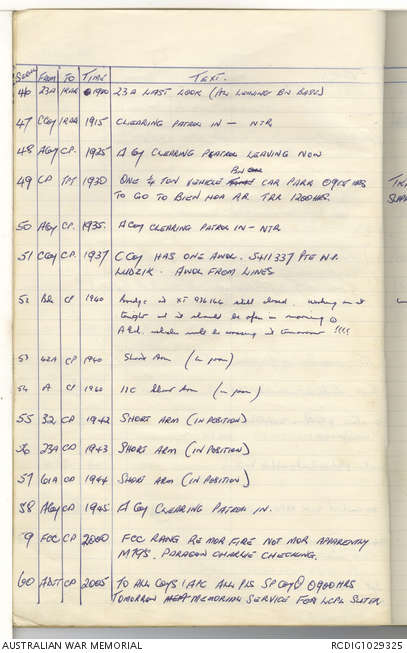 SERIAL FROM TO TIME TEXT.
46 23A 1RAR 1900 23A LAST LOOK (AN LEAVING BN BASE)
47 CCoy 1RAR 1915 CLEARING PATROL IN — NTR
48 ACoy CP. 1925 A Coy CLEARING PATROL LEAVING NOW
49 CP TPT 1930 ONE ¼ TON VEHICLE BN CAR PARK 0915 HRS
TO GO TO BIEN HOA RR. TRR 1200HRS.
50 ACoy CP 1935. A Coy CLEARING PATROL IN - NTR
51 CCoy CP. 1937 C COY HAS ONE AWOL. 5411337 PTE N.P.
LUDZIK. AWOL FROM LINES
52 Bde CP 1940 Bridge is XT 976146 still closed. Working on it
tonight and it should be open in morning
vehicles will be crossing it tomorrow !!!!
53 42A CP 1940 Short Arm (in posn)
54 A CP 1940 11C Short Arm (in posn)
55 32 CP 1942 SHORT ARM (IN POSITION)
56 23A CP 1943 SHORT ARM (IN POSITION)
57 61A CP 1944 SHORT ARM (IN POSITION)
58 ACoy CP 1945 A Coy CLEARING PATROL IN.
59 FCC CP 2000 FCC RANG RE MOR FIRE NOT MOR APPARENTLY
M79s. PARAGON CHARLIE CHECKING.
60 ADJT CP 2005 TO ALL COYS 1APC ALL PLS SP COY @ 0900HRS
TOMORROW MEMORIAL SERVICE FOR LCPL SLATER
AUSTRALIAN WAR MEMORIAL
RCDIG1029325